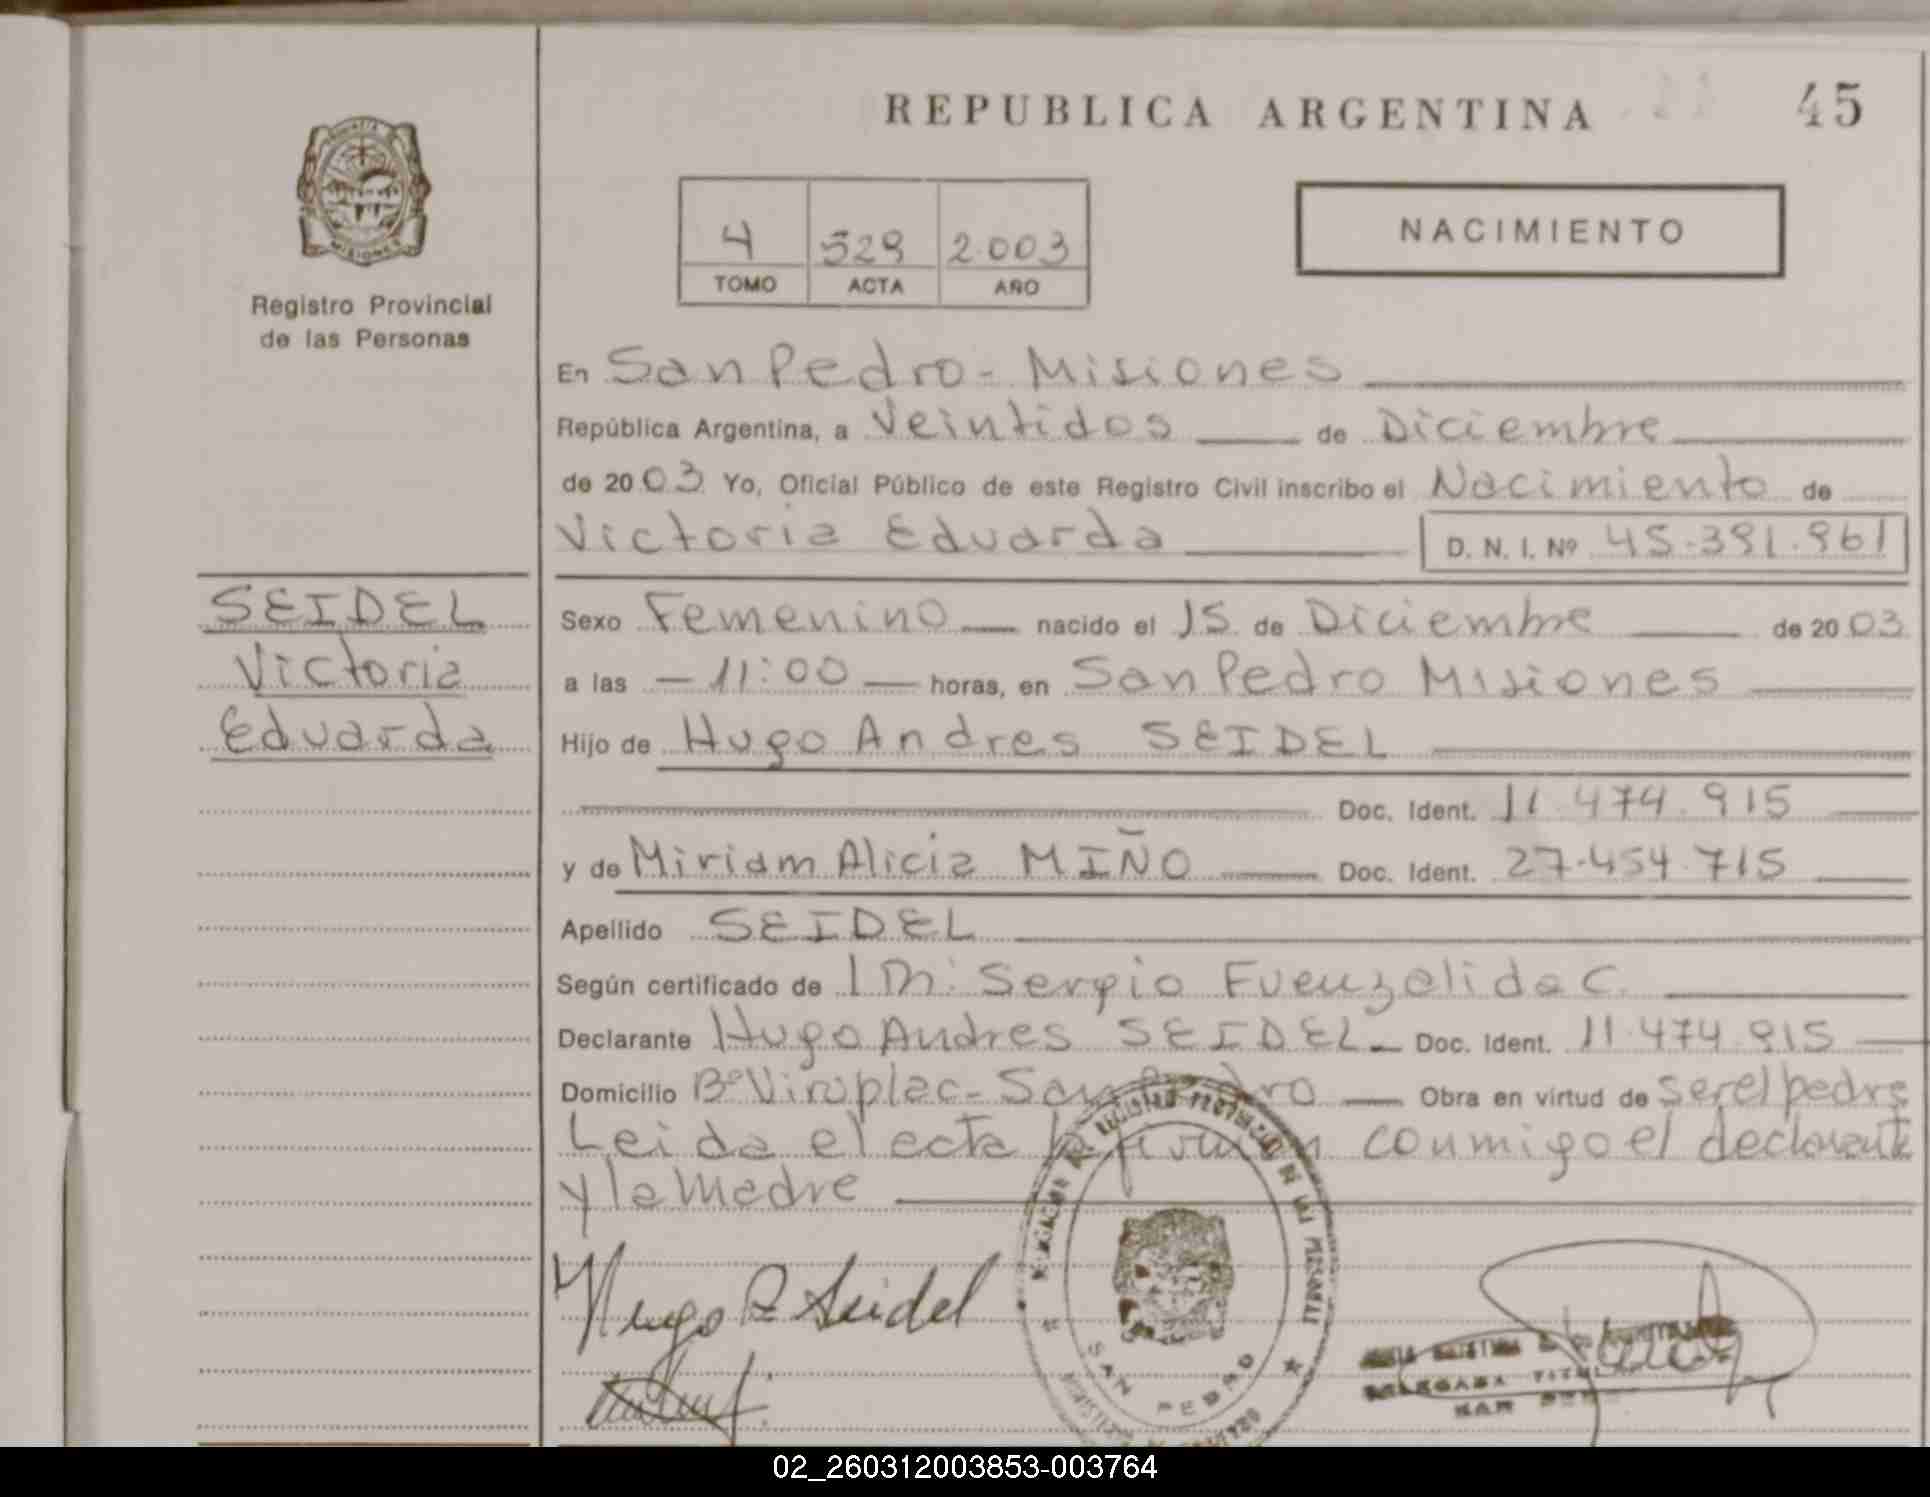 REPUBLICA ARGENTINA 45
MISIONES
Registro Provincial
de las Personas
4 529 2.003
TOMO ACTA AÑO
NACIMIENTO
En San Pedro - Misiones
República Argentina, a Veintidos de Diciembre
de 2003 Yo, Oficial Público de este Registro Civil inscribo el Nacimiento de
Victoria Eduarda D. N. I. Nº 45.391.961
SEIDEL
Victoria
Eduarda
Sexo Femenino nacido el 15 de Diciembre de 2003
a las - 11:00 - horas, en San Pedro Misiones
Hijo de Hugo Andres SEIDEL
Doc. Ident. 11.474.915
y de Miriam Alicia MIÑO Doc. Ident. 27.454.715
Apellido SEIDEL
Según certificado de Sergio Fuenzalida C.
Declarante Hugo Andres SEIDEL Doc. Ident. 11.474.915
Domicilio Bº Viroplac - San Pedro Obra en virtud de ser el padre
Leida el acta la firman conmigo el declarante
y la Madre
Hugo Seidel
SAN PEDRO
DELEGADA TITULAR
SAN
02_260312003853-003764